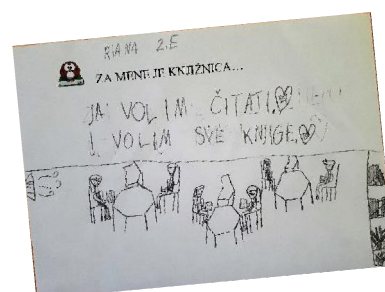 RIANA 2.E
ZA MENE JE KNJIŽNICA...
JA VOLIM ČITATI
I VOLIM SVE KNJIGE